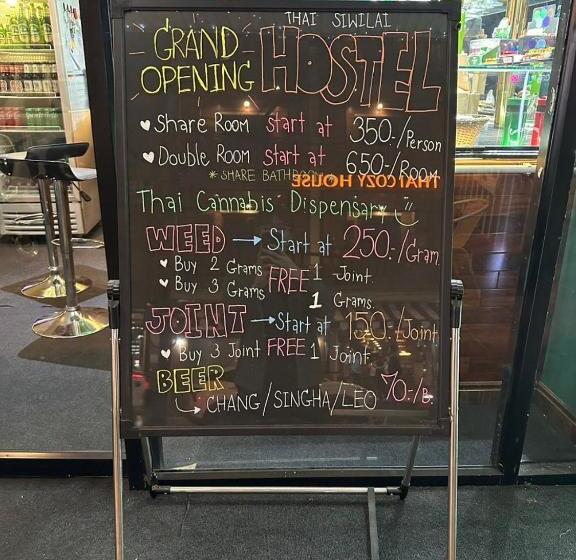 THAI SIWILAI
GRAND OPENING HOSTEL
Share Room start at 350.-/Person
Double Room start at 650.-/Room
* SHARE BATHROOM *
THAI COZY HOUSE
Thai Cannabis Dispensary
WEED → Start at 250.-/Gram
Buy 2 Grams FREE 1 Joint.
Buy 3 Grams 1 Grams.
JOINT → Start at 150.-/Joint
Buy 3 Joint FREE 1 Joint
BEER 70.-/B.
CHANG/SINGHA/LEO